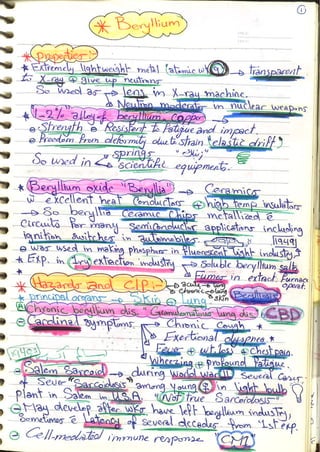 ①
* Beryllium
* properties:-
* Extremely lightweight metal (atomic wt 9) → transparent
to X-ray & give up neutrons
So used as → lens in X-ray machine.
→ Neutron moderator in nuclear weapons
* "1-2% alloy of beryllium copper →
→ Strength & Resistant to fatigue and impact.
→ Freedom from deformity due to strain "elastic drift"
So used in → springs
→ scientific equipments.
* Beryllium oxide "Beryllia" → Ceramics
w excellent heat conductors & high temp insulators
→ So beryllia Ceramic Chips metallized
circuits for many semiconductor applications including
ignition switches automobiles
1949
⊖ was used in making phosphor in fluorescent light industry
* Exp. in 1ry extraction industry → Soluble beryllium salts
Fumes in extract. Furnace
* Hazards and CIP:-
* principal organs → Skin & Lung
Beryllium
* Chronic beryllium dis. "Granulomatous lung dis" CBD
- Cardinal symptoms → Chronic Cough
→ Exertional dyspnea
→ Fever + wt. loss + Chest pain.
→ Wheezing + profound fatigue.
* Salem Sarcoid → during World War II Several cases
of Sever "Sarcoidosis" among young ♀ in light bulb
plant in Salem in U.S.A "Not true Sarcoidosis"
- May develop after WKs have left beryllium industry,
Sometimes é Latency of several decades from 1st exp.
- Cell-mediated immune response CMI